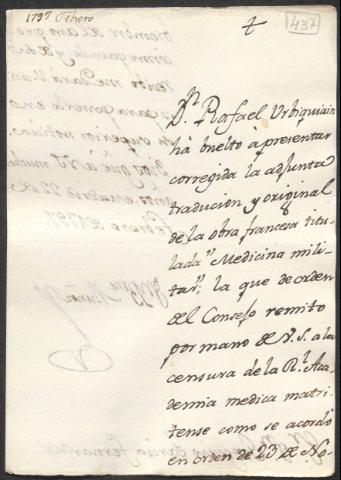 1797 Febrero
437
D.n Rafael Urbiquiain
hà buelto à presentar
corregida la adjunta
traducion y original
de la obra francesa titu-
lada "Medicina mili-
tar"; la que de orden
del Consejo remito
por mano de V. S. a la
censura de la R.l Aca-
demia medica matri-
tense como se acordó
en orden de 23 de No-